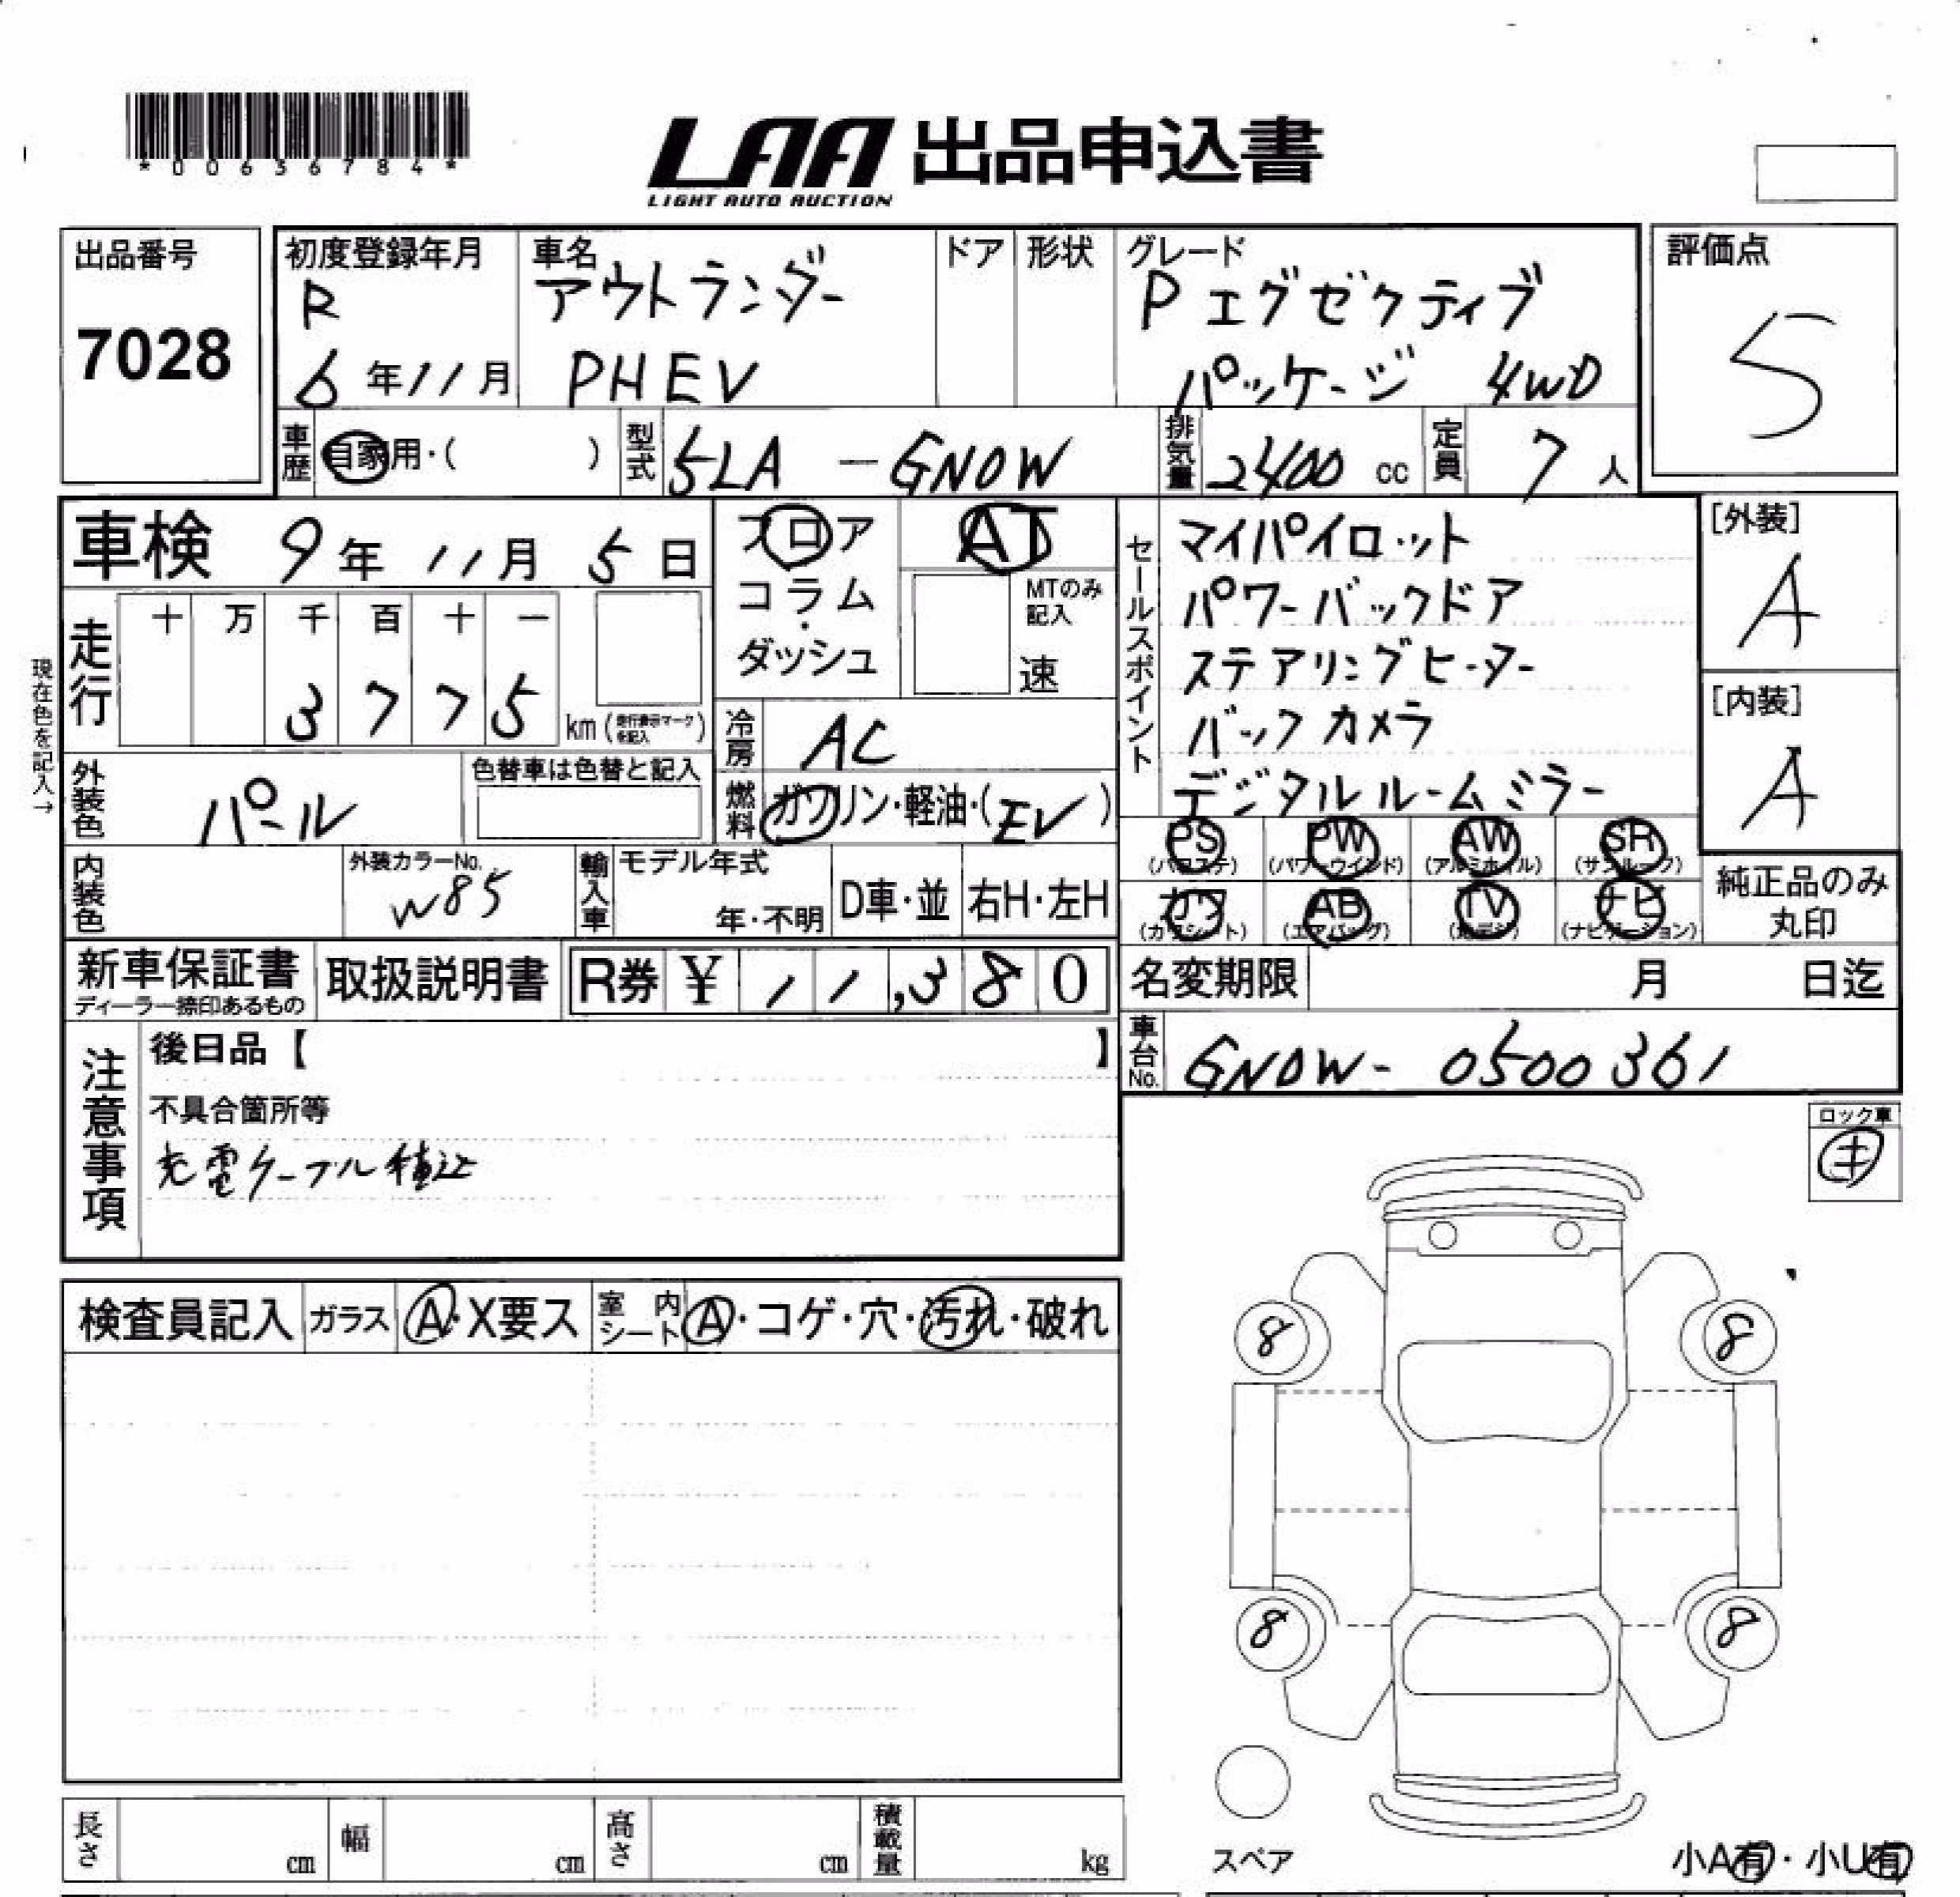 *00636784*
LAA 出品申込書
LIGHT AUTO AUCTION
出品番号
7028
初度登録年月
R
6年11月
車名
アウトランダー
PHEV
ドア
形状
グレード
Pエグゼクティブ
パッケージ 4WD
評価点
5
車歴
自家用・( )
型式
5LA-GN0W
排気量
2400 cc
定員
7人
車検 9年11月5日
走行
十 万 千 百 十 一
3 7 7 5
km(走行表示マークを記入)
現在色を記入→
フロア
コラム
・
ダッシュ
AT
MTのみ
記入
速
セールスポイント
マイパイロット
パワーバックドア
ステアリングヒーター
バックカメラ
デジタルルームミラー
[外装]
A
[内装]
A
冷房
AC
外装色
パール
色替車は色替と記入
燃料
ガソリン・軽油・(EV)
PS
(パワステ)
PW
(パワーウインド)
AW
(アルミホイル)
SR
(サンルーフ)
カワ
(カワシート)
AB
(エアバッグ)
TV
ナビ
(ナビゲーション)
純正品のみ
丸印
内装色
外装カラーNo.
W85
輸入車
モデル年式
年・不明
D車・並
右H・左H
新車保証書
ディーラー捺印あるもの
取扱説明書
R券 ¥11,380
名変期限 月 日迄
車台No.
GN0W-0500361
注意事項
後日品【 】
不具合箇所等
充電ケーブル積込
ロック車
キ
検査員記入
ガラス
A・X要ス
室内
シート
A・コゲ・穴・汚れ・破れ
8
8
8
8
長さ cm
幅 cm
高さ cm
積載量 kg
スペア
小A有・小U有